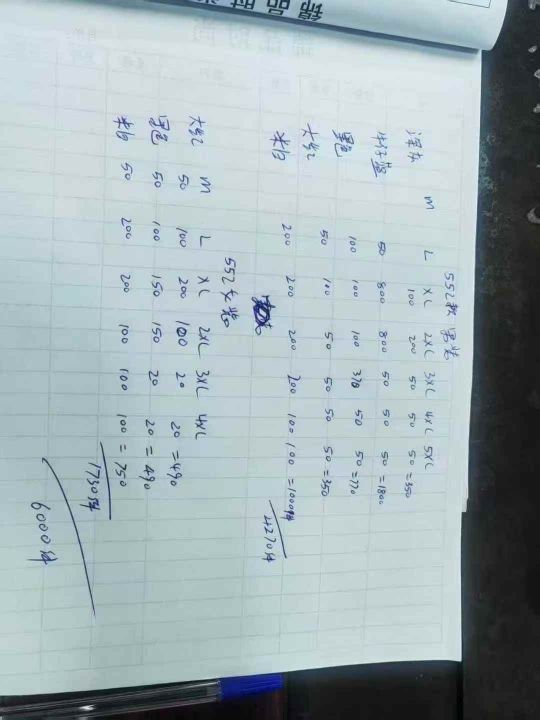 552款 男装
M L XL 2XL 3XL 4XL 5XL
100 200 50 50 50 =350
50 800 800 50 50 50 =1800
黑色 100 100 100 370 50 50 =770
大红 50 100 50 50 50 50 =350
米白 200 200 200 200 100 100 =1000件
4270件
552女装
M L XL 2XL 3XL 4XL
大红 50 100 200 100 20 20 =490
黑色 50 100 150 150 20 20 =490
米白 50 200 200 100 100 100 =750
1730件
6000件